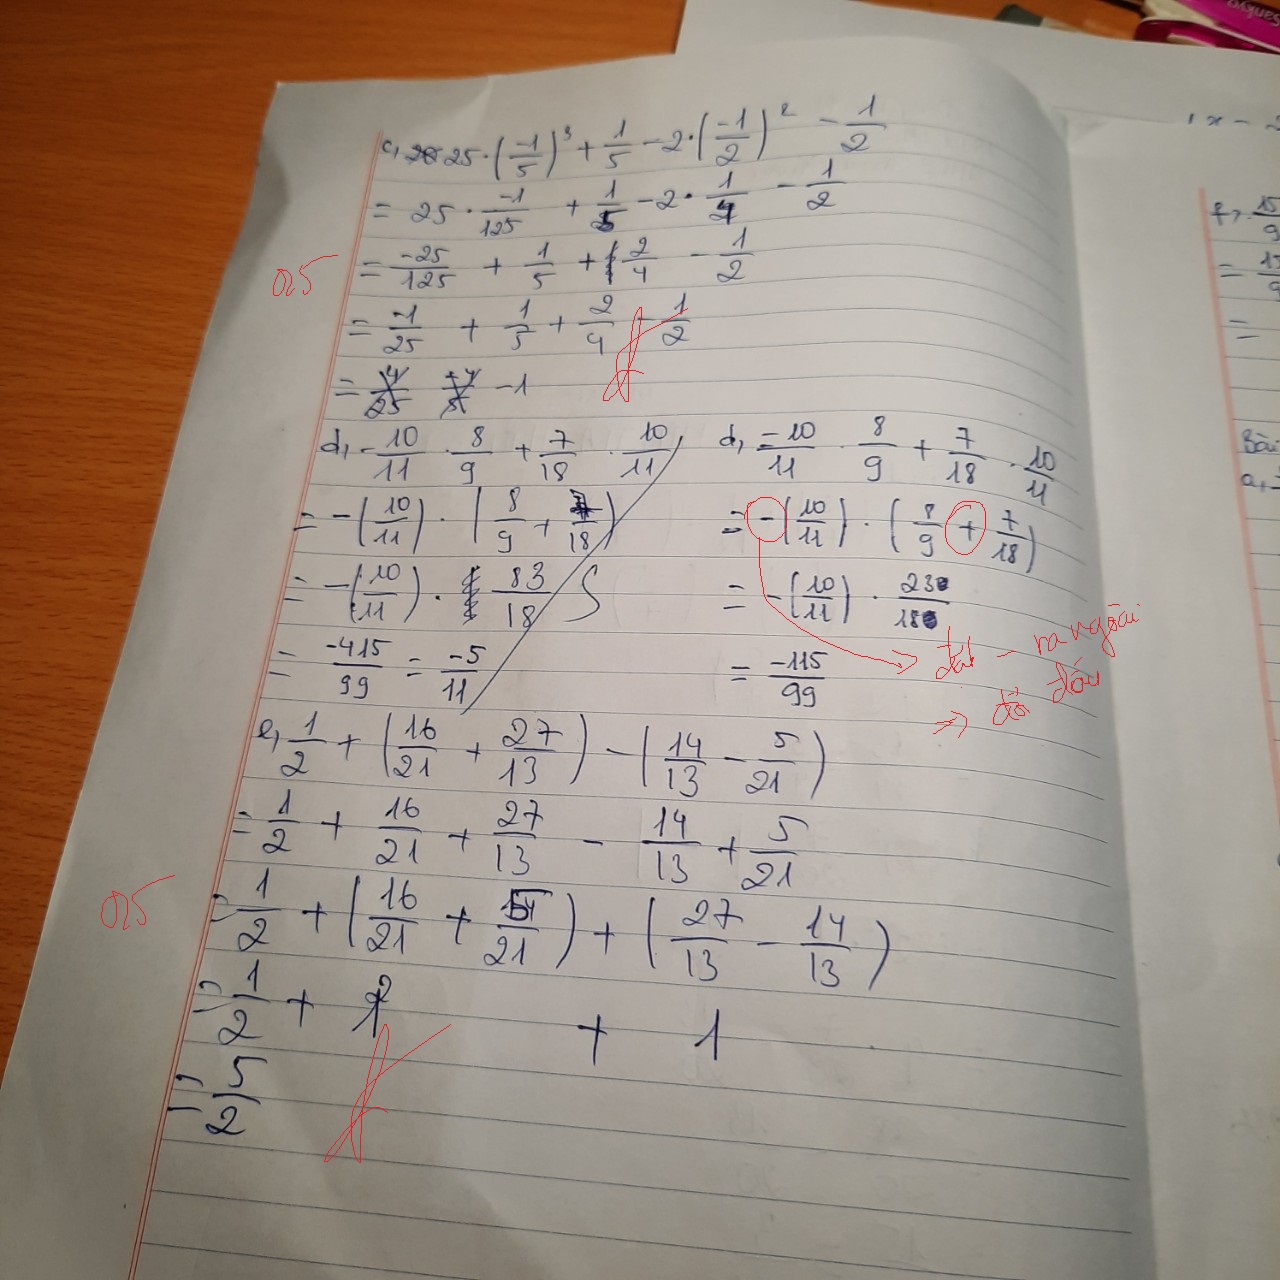 c, 25·(-1/5)³ + 1/5 - 2·(-1/2)² - 1/2
= 25 · -1/125 + 1/5 - 2 · 1/4 - 1/2
= -25/125 + 1/5 + 2/4 - 1/2
0,25
= -1/25 + 1/5 + 2/4 - 1/2
= -1
d, -10/11 · 8/9 + 7/18 · 10/11
= -(10/11) · (8/9 + 7/18)
= -(10/11) · 83/18
= -415/99 = -5/11
d, -10/11 · 8/9 + 7/18 · 10/11
= -(10/11) · (8/9 + 7/18)
= -(10/11) · 23/18
= -115/99
đặt - ra ngoài
=> đổi dấu
e, 1/2 + (16/21 + 27/13) - (14/13 - 5/21)
= 1/2 + 16/21 + 27/13 - 14/13 + 5/21
0,25
= 1/2 + (16/21 + 5/21) + (27/13 - 14/13)
= 1/2 + 1 + 1
= 5/2
f, 15/9
= 15/9
=
Bài
a,